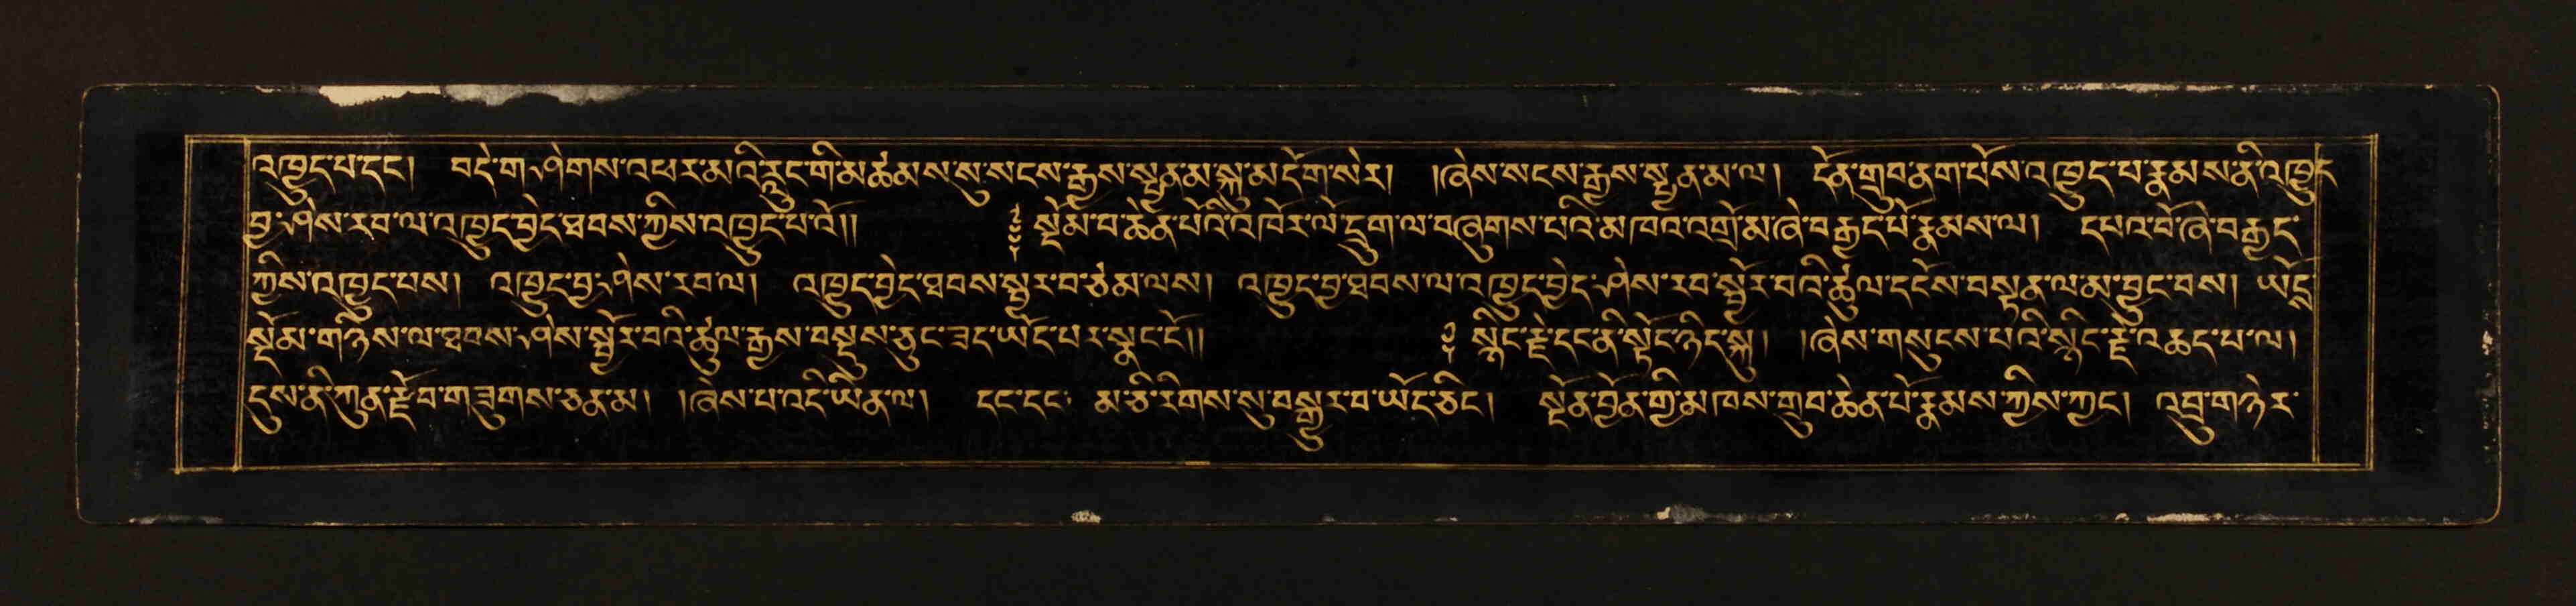 འཁྱུད་པ་དང༌། བདེ་གཤེགས་འཕར་མའི་རླུང་གི་མཚམས་སུ་སངས་རྒྱས་སྤྱན་མ་སྐུ་མདོག་སེར། །ཞེས་སངས་རྒྱས་སྤྱན་མ་ལ། དོན་གྲུབ་ནག་པོས་འཁྱུད་པ་རྣམས་ནི་འཁྱུད
བྱ་ཤེས་རབ་ལ་འཁྱུད་བྱེད་ཐབས་ཀྱིས་འཁྱུད་པ་འོ།། སྡོམ་བ་ཆེན་པོའི་འཁོར་ལོ་དྲུག་ལ་བཞུགས་པའི་མཁའ་འགྲོ་མ་ཞེ་བརྒྱད་པོ་རྣམས་ལ། དཔའ་བོ་ཞེ་བརྒྱད་
ཀྱིས་འཁྱུད་པས། འཁྱུད་བྱ་ཤེས་རབ་ལ། འཁྱུད་བྱེད་ཐབས་སྦྱར་བ་ཙམ་ལས། འཁྱུད་བྱ་ཐབས་ལ་འཁྱུད་བྱེད་ཤེས་རབ་སྦྱོར་བའི་ཚུལ་དངོས་བསྟན་ལ་མ་བྱུང་བས། ཡོ་དྲ
སྡོམ་གཉིས་ལ་ཐབས་ཤེས་སྦྱོར་བའི་ཚུལ་རྒྱས་བསྡུས་ཅུང་ཟད་ཡོད་པར་སྣང་ངོ།། ༢ སྙིང་རྗེ་དང་ནི་སྟོང་ཉིད་སྐུ། །ཞེས་གསུངས་པའི་སྙིང་རྗེ་འཆད་པ་ལ།
དུས་ནི་ཀུན་རྫོབ་གཟུགས་ཅན་མ། །ཞེས་པ་འདི་ཡིན་ལ། དང་དང་ མ་ཅི་རིགས་སུ་བསྒྱུར་བ་ཡོད་ཅིང༌། སྔོན་བྱོན་གྱི་མཁས་གྲུབ་ཆེན་པོ་རྣམས་ཀྱིས་ཀྱང༌། འབྲུ་གཉེར་